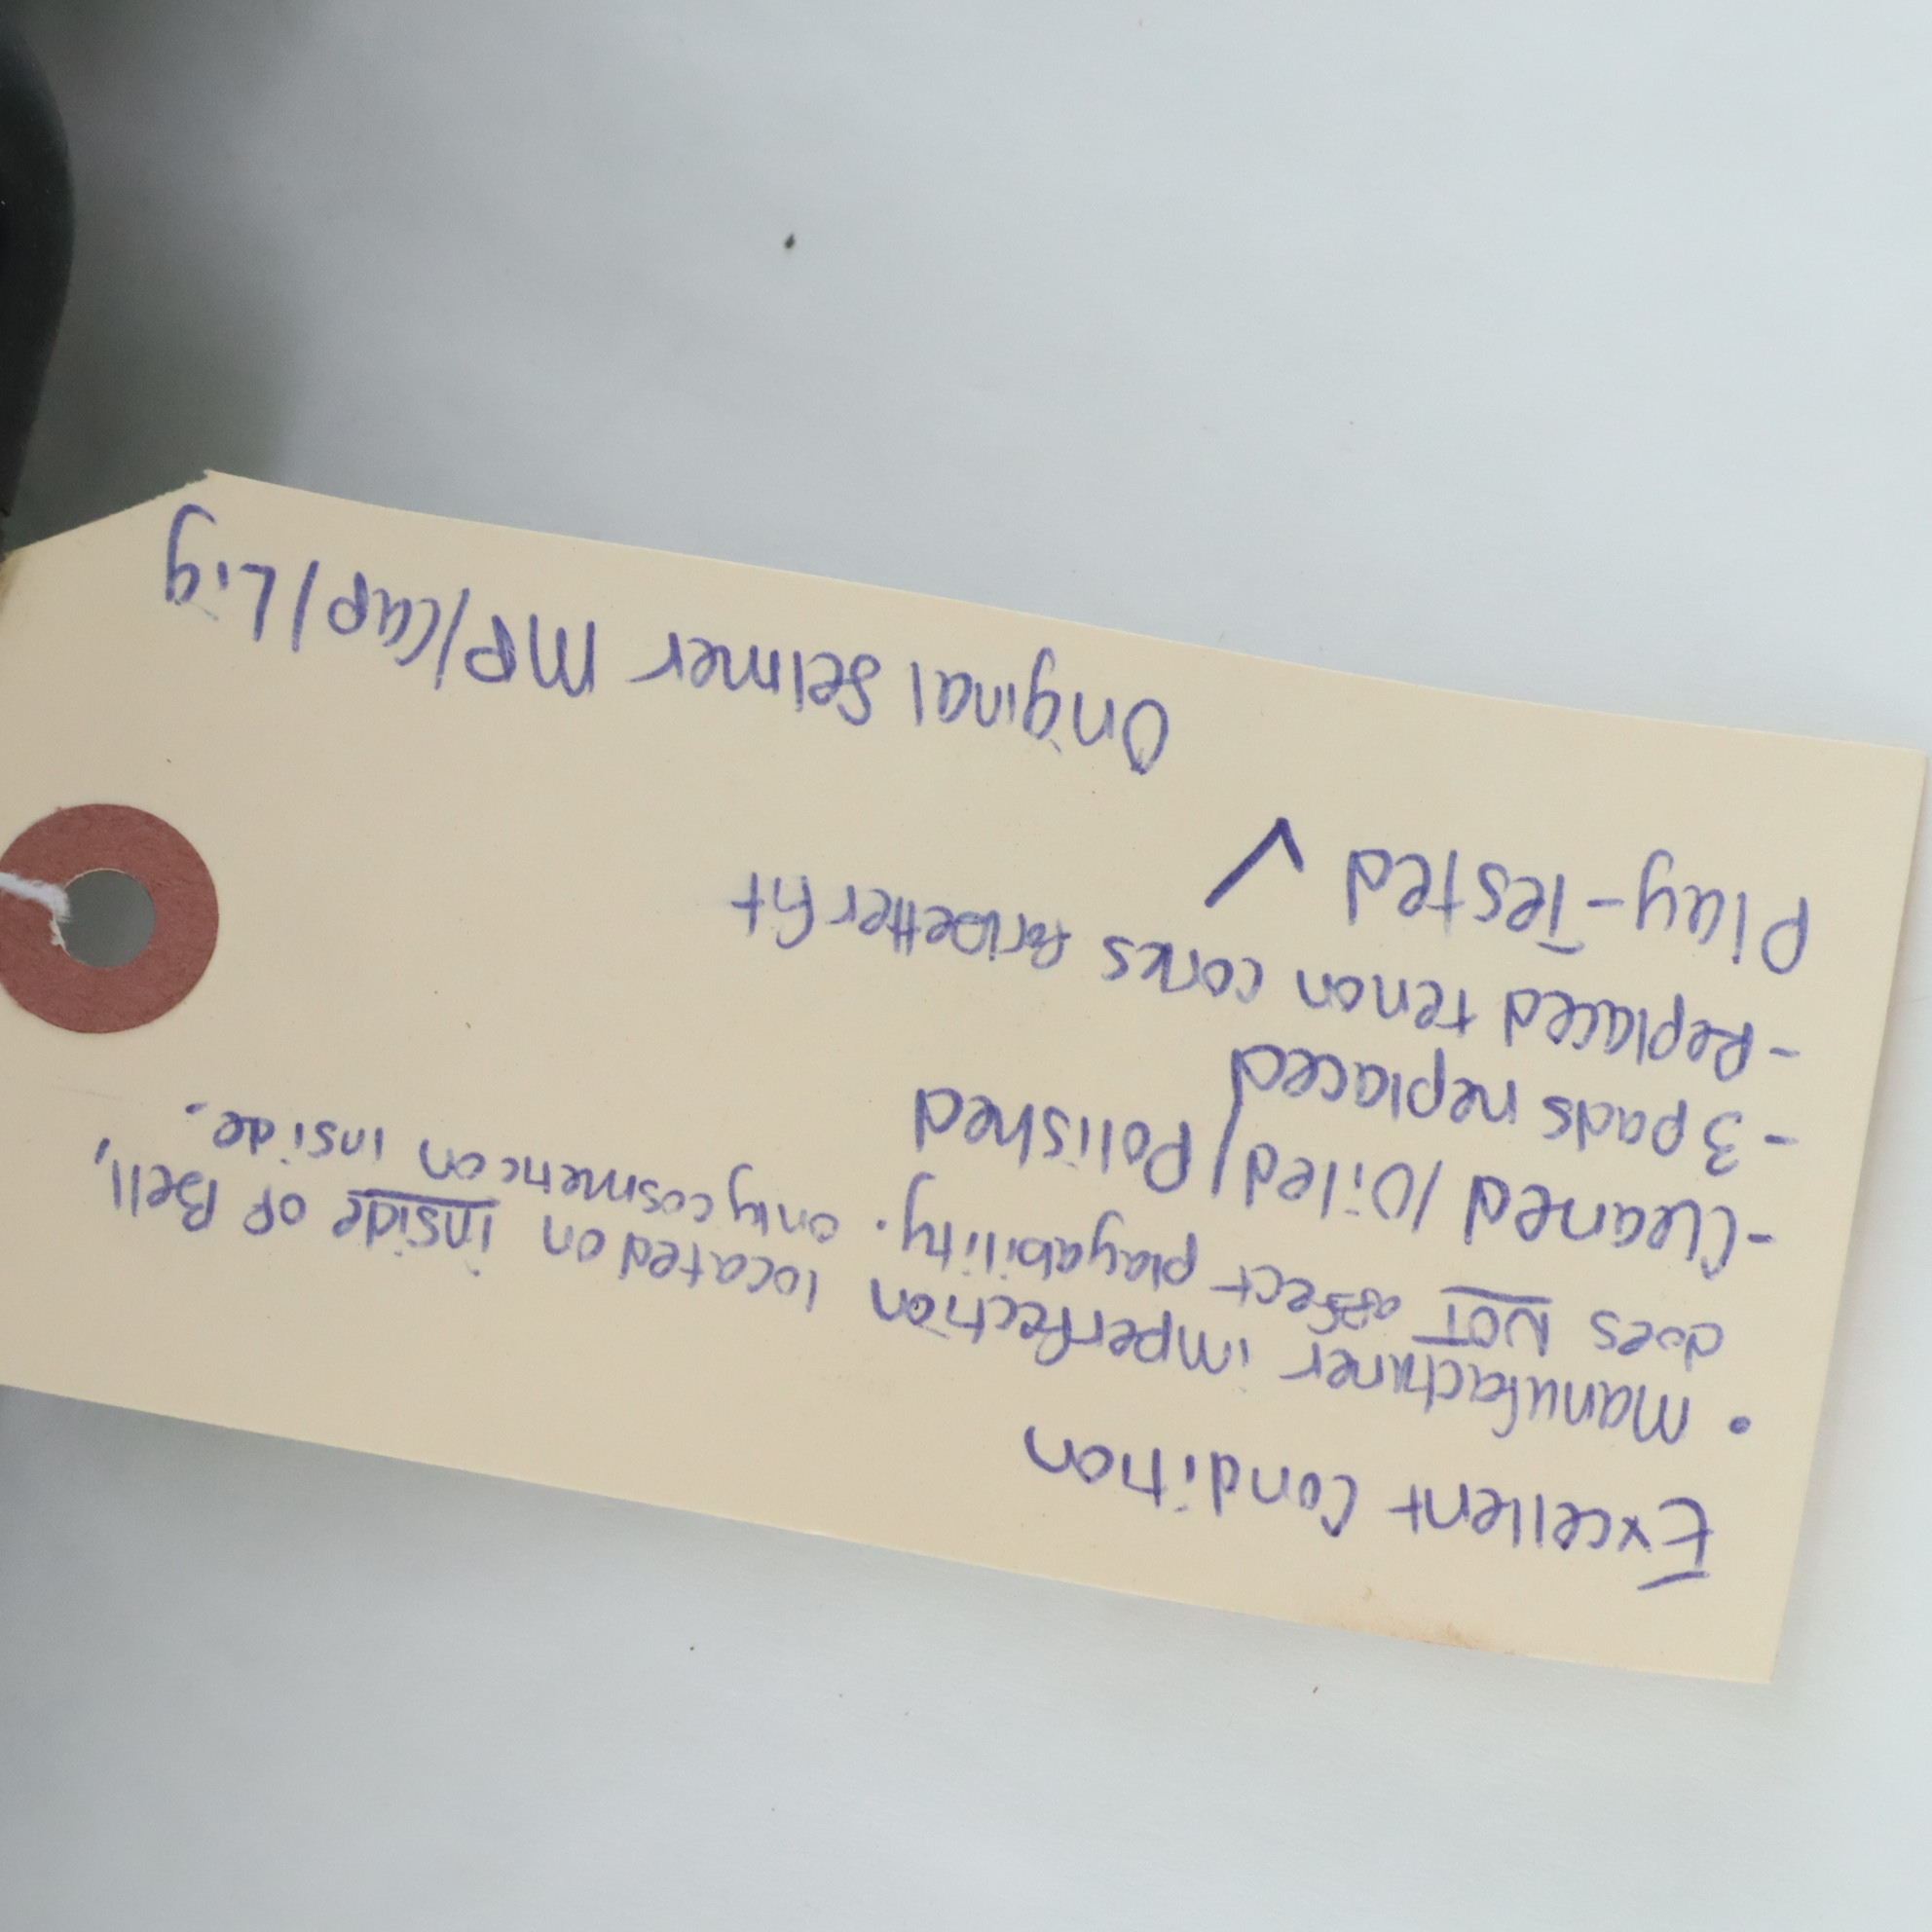 Excellent Condition
• manufacturer imperfection located on inside of Bell,
does NOT affect playability. only cosmetic on inside.
-Cleaned/Oiled/Polished
-3 pads replaced
-Replaced tenon corks for better fit
Play-Tested ✓
Original Selmer MP/Cap/Lig